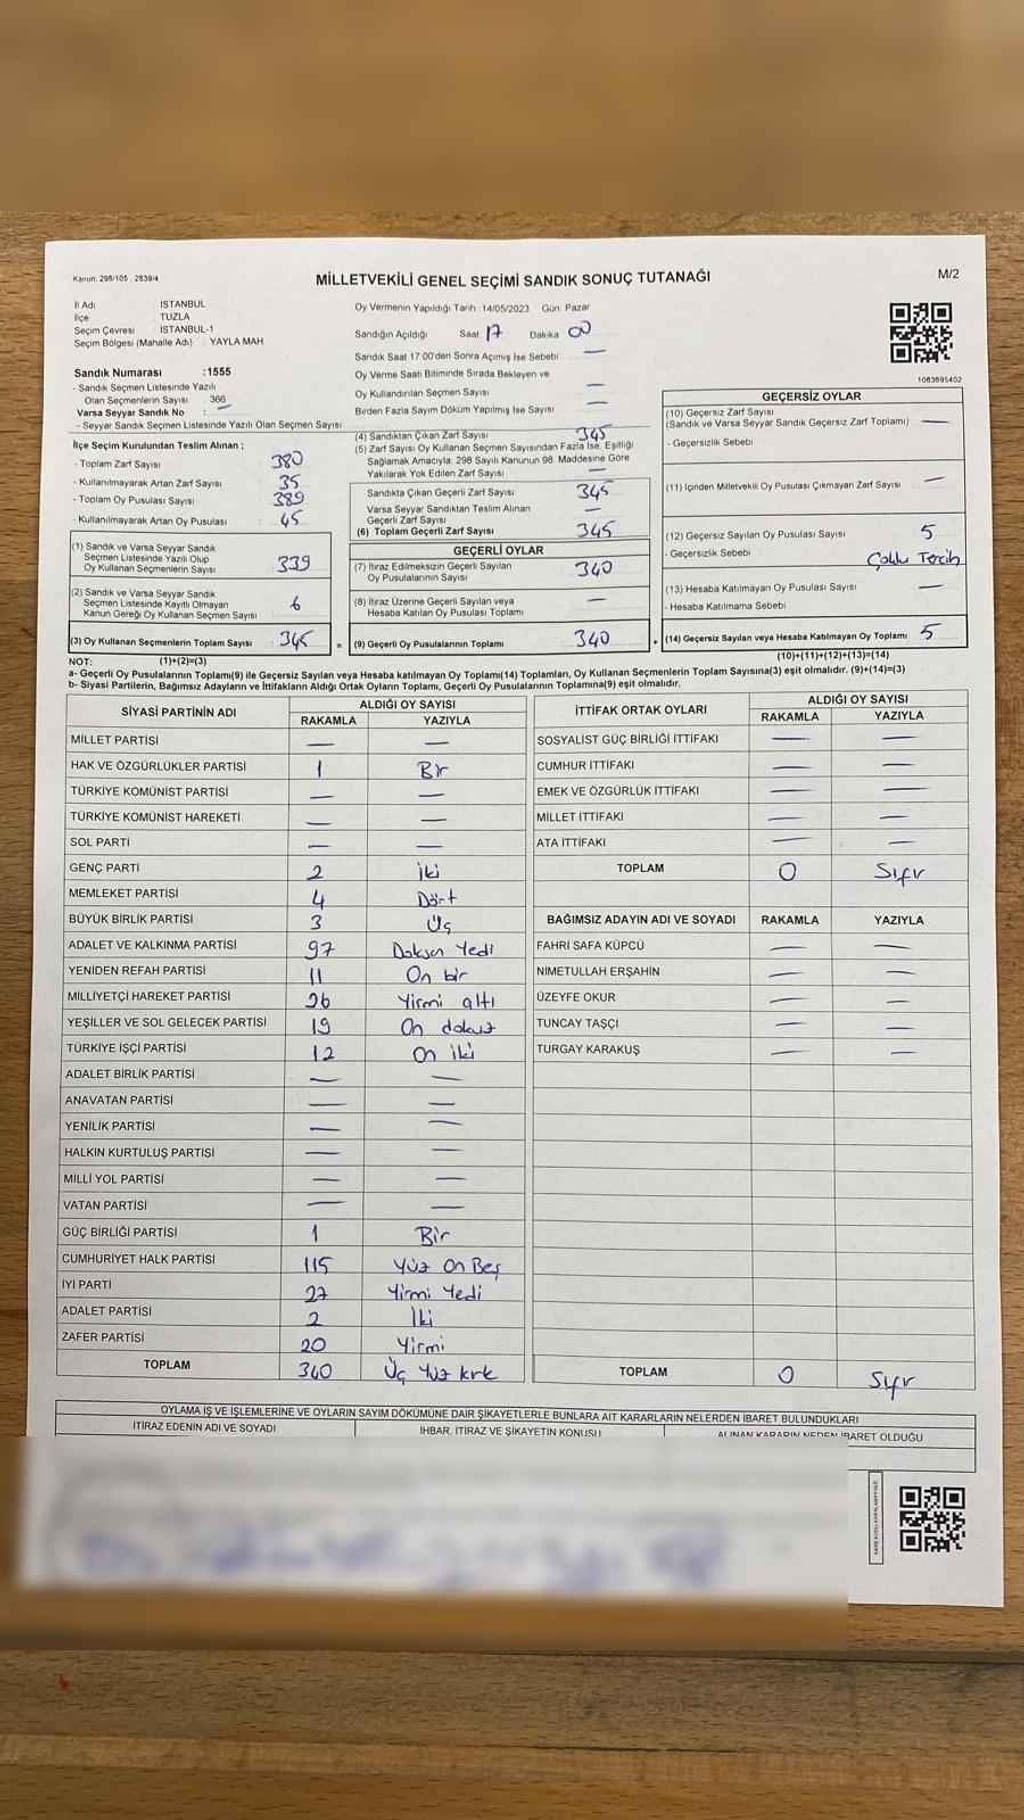 Kanun: 298/105 - 2839/4
MİLLETVEKİLİ GENEL SEÇİMİ SANDIK SONUÇ TUTANAĞI
M/2
İl Adı İSTANBUL
İlçe TUZLA
Seçim Çevresi İSTANBUL-1
Seçim Bölgesi (Mahalle Adı) YAYLA MAH
Sandık Numarası :1555
- Sandık Seçmen Listesinde Yazılı
Olan Seçmenlerin Sayısı 366
Varsa Seyyar Sandık No : —
- Seyyar Sandık Seçmen Listesinde Yazılı Olan Seçmen Sayısı
İlçe Seçim Kurulundan Teslim Alınan ;
- Toplam Zarf Sayısı 380
- Kullanılmayarak Artan Zarf Sayısı 35
- Toplam Oy Pusulası Sayısı 389
- Kullanılmayarak Artan Oy Pusulası 45
(1) Sandık ve Varsa Seyyar Sandık
Seçmen Listesinde Yazılı Olup
Oy Kullanan Seçmenlerin Sayısı 339
(2) Sandık ve Varsa Seyyar Sandık
Seçmen Listesinde Kayıtlı Olmayan
Kanun Gereği Oy Kullanan Seçmen Sayısı 6
(3) Oy Kullanan Seçmenlerin Toplam Sayısı 345 =
Oy Vermenin Yapıldığı Tarih :14/05/2023 Gün: Pazar
Sandığın Açıldığı Saat 17 Dakika 00
Sandık Saat 17:00'den Sonra Açımış İse Sebebi —
Oy Verme Saati Bitiminde Sırada Bekleyen ve
Oy Kullandırılan Seçmen Sayısı —
Birden Fazla Sayım Döküm Yapılmış İse Sayısı —
(4) Sandıktan Çıkan Zarf Sayısı 345
(5) Zarf Sayısı Oy Kullanan Seçmen Sayısından Fazla İse, Eşitliği
Sağlamak Amacıyla, 298 Sayılı Kanunun 98. Maddesine Göre
Yakılarak Yok Edilen Zarf Sayısı —
Sandıkta Çıkan Geçerli Zarf Sayısı 345
Varsa Seyyar Sandıktan Teslim Alınan
Geçerli Zarf Sayısı —
(6) Toplam Geçerli Zarf Sayısı 345
GEÇERLİ OYLAR
(7) İtiraz Edilmeksizin Geçerli Sayılan
Oy Pusulalarının Sayısı 340
(8) İtiraz Üzerine Geçerli Sayılan veya
Hesaba Katılan Oy Pusulası Toplamı —
(9) Geçerli Oy Pusulalarının Toplamı 340
1083695402
GEÇERSİZ OYLAR
(10) Geçersiz Zarf Sayısı
(Sandık ve Varsa Seyyar Sandık Geçersiz Zarf Toplamı) —
- Geçersizlik Sebebi
(11) İçinden Milletvekili Oy Pusulası Çıkmayan Zarf Sayısı —
(12) Geçersiz Sayılan Oy Pusulası Sayısı 5
- Geçersizlik Sebebi Çoklu Tercih
(13) Hesaba Katılmayan Oy Pusulası Sayısı —
- Hesaba Katılmama Sebebi
(14) Geçersiz Sayılan veya Hesaba Katılmayan Oy Toplamı 5
NOT: (1)+(2)=(3) (10)+(11)+(12)+(13)=(14)
a- Geçerli Oy Pusulalarının Toplamı(9) ile Geçersiz Sayılan veya Hesaba katılmayan Oy Toplamı(14) Toplamları, Oy Kullanan Seçmenlerin Toplam Sayısına(3) eşit olmalıdır. (9)+(14)=(3)
b- Siyasi Partilerin, Bağımsız Adayların ve İttifakların Aldığı Ortak Oyların Toplamı, Geçerli Oy Pusulalarının Toplamına(9) eşit olmalıdır.
SİYASİ PARTİNİN ADI ALDIĞI OY SAYISI
RAKAMLA YAZIYLA
MİLLET PARTİSİ — —
HAK VE ÖZGÜRLÜKLER PARTİSİ 1 Bir
TÜRKİYE KOMÜNİST PARTİSİ — —
TÜRKİYE KOMÜNİST HAREKETİ — —
SOL PARTİ — —
GENÇ PARTİ 2 iki
MEMLEKET PARTİSİ 4 Dört
BÜYÜK BİRLİK PARTİSİ 3 Üç
ADALET VE KALKINMA PARTİSİ 97 Doksan Yedi
YENİDEN REFAH PARTİSİ 11 On bir
MİLLİYETÇİ HAREKET PARTİSİ 26 Yirmi altı
YEŞİLLER VE SOL GELECEK PARTİSİ 19 On dokuz
TÜRKİYE İŞÇİ PARTİSİ 12 On iki
ADALET BİRLİK PARTİSİ — —
ANAVATAN PARTİSİ — —
YENİLİK PARTİSİ — —
HALKIN KURTULUŞ PARTİSİ — —
MİLLİ YOL PARTİSİ — —
VATAN PARTİSİ — —
GÜÇ BİRLİĞİ PARTİSİ 1 Bir
CUMHURİYET HALK PARTİSİ 115 Yüz On Beş
İYİ PARTİ 27 Yirmi Yedi
ADALET PARTİSİ 2 İki
ZAFER PARTİSİ 20 Yirmi
TOPLAM 340 Üç Yüz kırk
İTTİFAK ORTAK OYLARI ALDIĞI OY SAYISI
RAKAMLA YAZIYLA
SOSYALİST GÜÇ BİRLİĞİ İTTİFAKI — —
CUMHUR İTTİFAKI — —
EMEK VE ÖZGÜRLÜK İTTİFAKI — —
MİLLET İTTİFAKI — —
ATA İTTİFAKI — —
TOPLAM 0 Sıfır
BAĞIMSIZ ADAYIN ADI VE SOYADI RAKAMLA YAZIYLA
FAHRİ SAFA KÜPCÜ — —
NİMETULLAH ERŞAHİN — —
ÜZEYFE OKUR — —
TUNCAY TAŞÇI — —
TURGAY KARAKUŞ — —
TOPLAM 0 Sıfır
OYLAMA İŞ VE İŞLEMLERİNE VE OYLARIN SAYIM DÖKÜMÜNE DAİR ŞİKAYETLERLE BUNLARA AİT KARARLARIN NELERDEN İBARET BULUNDUKLARI
İTİRAZ EDENİN ADI VE SOYADI İHBAR, İTİRAZ VE ŞİKAYETİN KONUSU ALINAN KARARIN NEDEN İBARET OLDUĞU